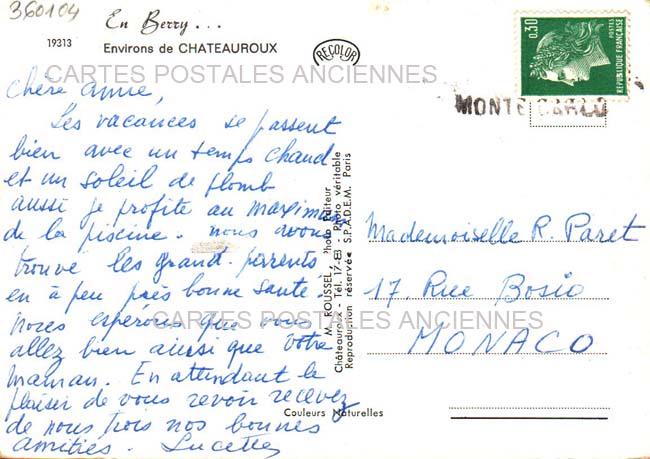 360104
En Berry...
19313
Environs de CHATEAUROUX
RECOLOR
0,30
POSTES
REPUBLIQUE FRANÇAISE
CARTES POSTALES ANCIENNES
MONTE CARLO
Chère Annie,
Les vacances se passent
bien avec un temps chaud
et un soleil de plomb
aussi je profite au maximum
de la piscine. nous avons
trouvé les grand. parrents
en à peu près bonne santé.
nous espérons que vous
allez bien ainsi que votre
maman. En attendant le
plaisir de vous revoir recevez
de nous trois nos bonnes
amitiés. Lucette
M. ROUSSEL, Photo Editeur
Châteauroux - Tél. 17-E8 - Photo véritable
Reproduction réservée S.P.A.D.E.M. Paris
Mademoiselle R. Paret
17, Rue Bosio
MONACO
CARTES POSTALES ANCIENNES
Couleurs Naturelles